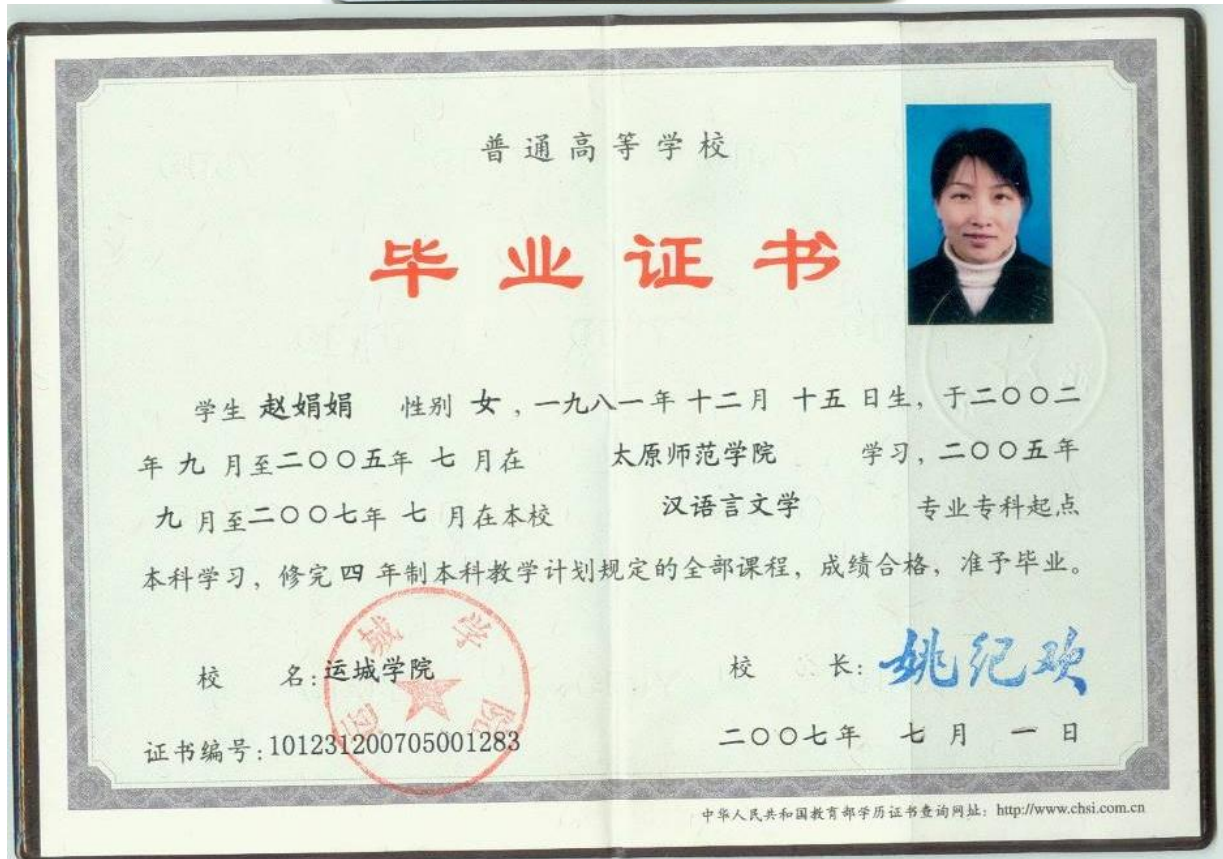 普通高等学校
毕业证书
学生 赵娟娟 性别 女 ，一九八一年 十二月 十五 日生，于二〇〇二
年 九 月至二〇〇五年 七 月在 太原师范学院 学习，二〇〇五年
九 月至二〇〇七年 七 月在本校 汉语言文学 专业专科起点
本科学习，修完 四 年制本科教学计划规定的全部课程，成绩合格，准予毕业。
校 名：运城学院 校 长：姚纪欢
证书编号：101231200705001283 二〇〇七年 七 月 一 日
中华人民共和国教育部学历证书查询网址：http://www.chsi.com.cn